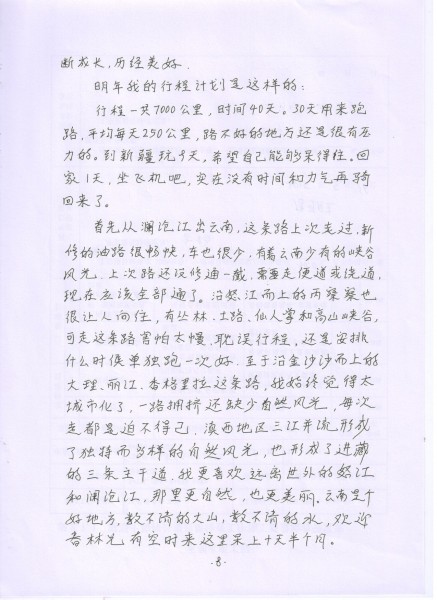 断成长,历经美好.
明年我的行程计划是这样的:
行程一共7000公里,时间40天。30天用来跑
路,平均每天250公里,路不好的地方还是很有压
力的。到新疆玩9天,希望自己能够呆得住。回
家1天,坐飞机吧,实在没有时间和力气再骑
回来了。
首先从澜沧江出云南,这条路上次走过,新
修的油路很畅快,车也很少,有着云南少有的峡谷
风光.上次路还没修通一截,需要走便道或绕道,
现在应该全部通了。沿怒江而上的丙察察也
很让人向往,有丛林、土路、仙人掌和高山峡谷,
可走这条路害怕太慢,耽误行程,还是安排
什么时候单独跑一次好.至于沿金沙江而上的
大理、丽江、香格里拉这条路,我始终觉得太
城市化了,一路拥挤还缺少自然风光,每次
走都是迫不得已,滇西地区三江并流,形成
了独特而多样的自然风光,也形成了进藏
的三条主干道,我更喜欢远离世外的怒江
和澜沧江,那里更自然,也更美丽.云南是个
好地方,数不清的大山,数不清的水,欢迎
香林兄有空时来这里呆上十天半个月。
·8·